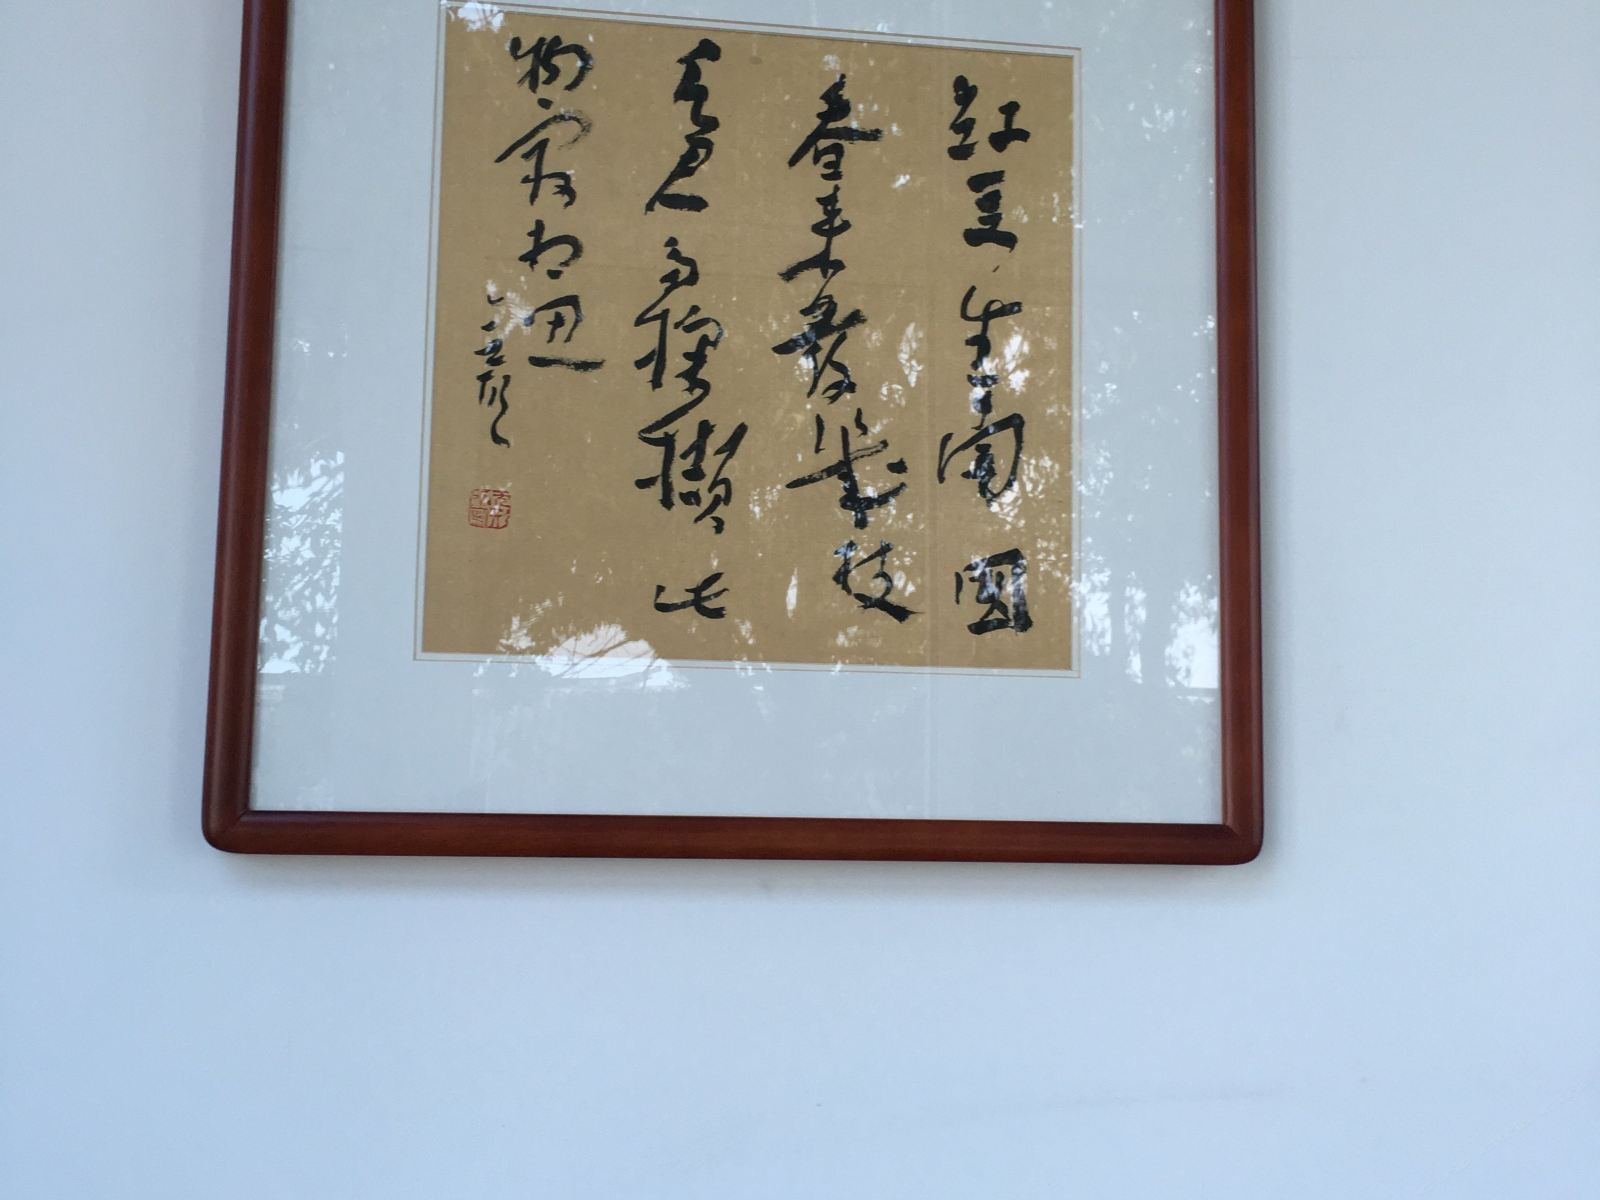 紅豆生南國
春來發幾枝
願君多採擷此
物最相思